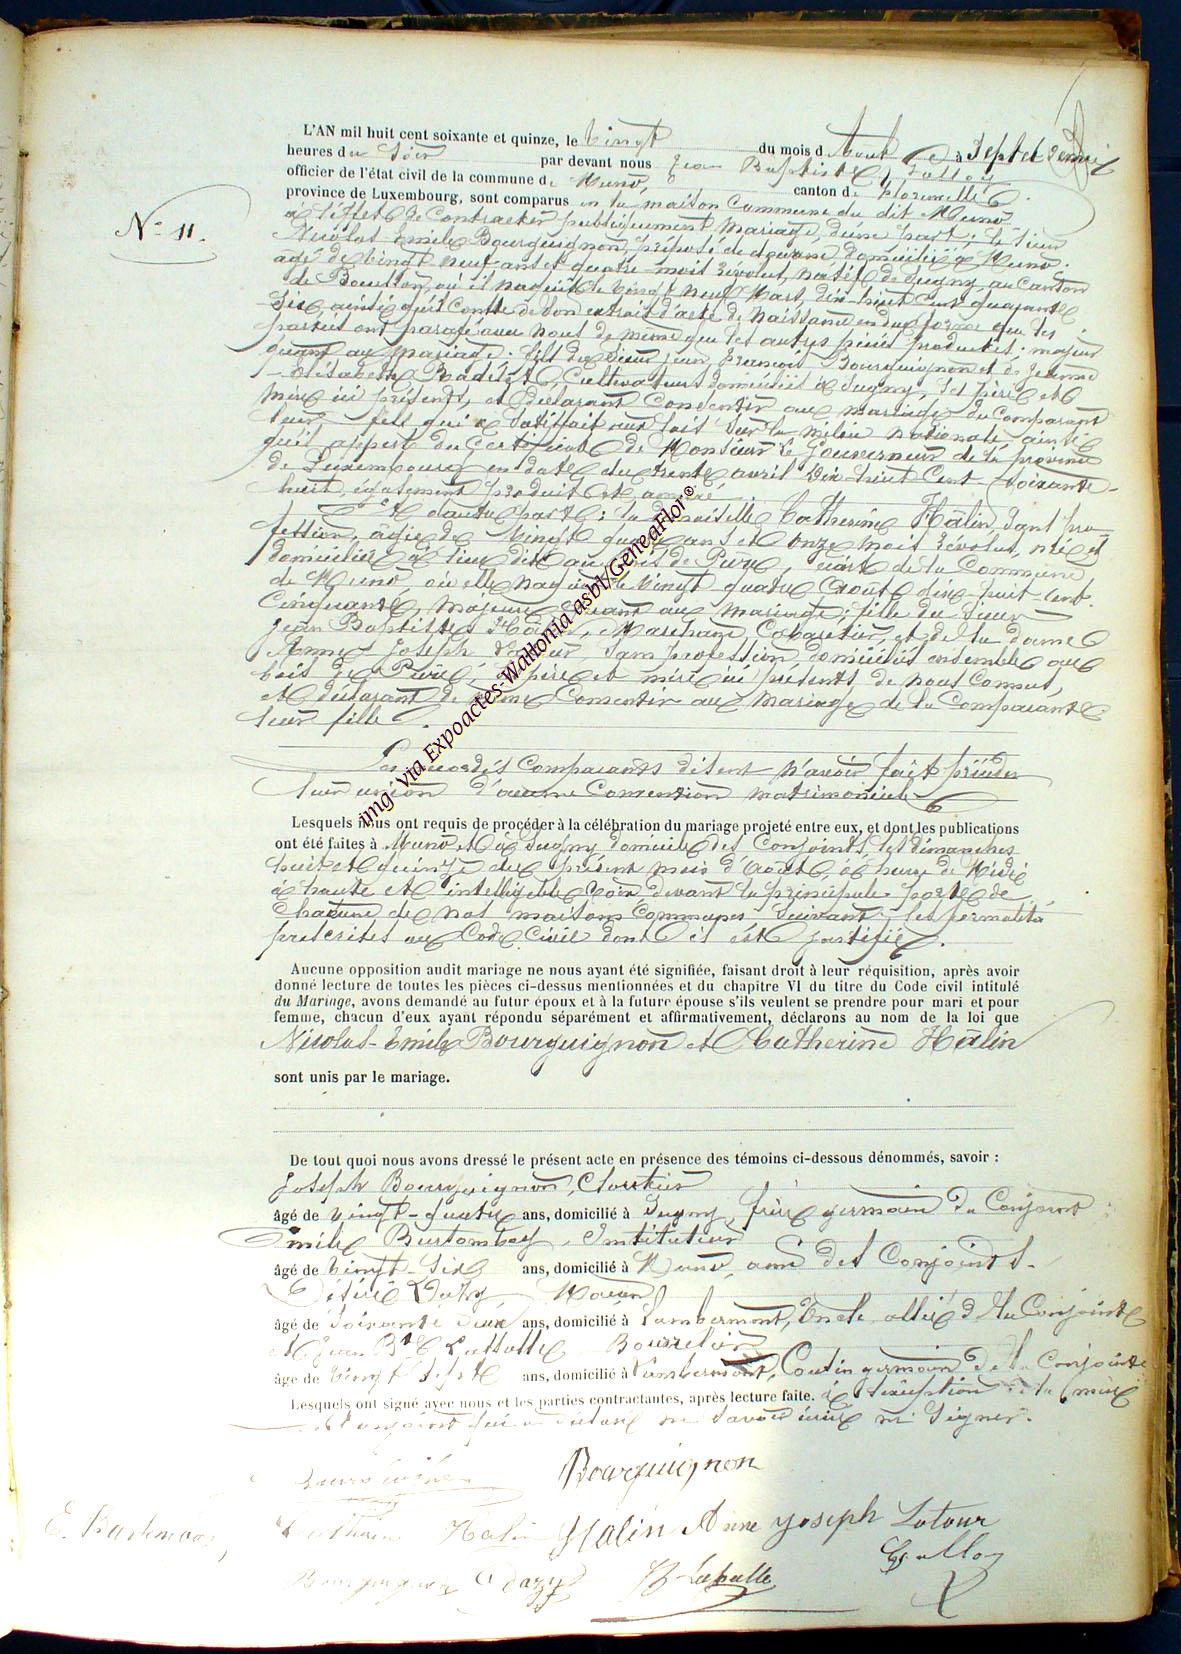 N° 11.
L'AN mil huit cent soixante et quinze, le vingt du mois d'Août à sept et demie
heures du soir par devant nous Jean Baptiste
officier de l'état civil de la commune de Muno, canton de Florenville
province de Luxembourg, sont comparus en la maison Commune du dit Muno
à l'effet de Contracter publiquement Mariage, d'une part: le Sieur
Nicolas Emile Bourguignon, préposé de douane domicilié à Muno
âgé de vingt neuf ans et quatre mois révolus, natif de Sugny, au Canton
de Bouillon, où il naquit le vingt neuf Mars, dix-huit Cent quarante
Six, ainsi qu'il Conste de Son extrait d'acte de Naissance en due forme que les
parties ont parafé avec Nous de même que les autres pièces produites; majeur
quant au Mariage. fils du Sieur Jean François Bourguignon et de Jeanne
Elisabeth Cultivateurs domiciliés à Sugny, Ses père et
Mère ici présents, et déclarant Consentir au mariage du Comparant
leur fils, qui a Satisfait aux lois Sur la milice nationale ainsi
qu'il appert du Certificat de Monsieur le Gouverneur de la province
de Luxembourg en date du trente avril Dix-huit Cent Soixante
huit, également produit et annexé.
Et d'autre part: la demoiselle Catherine Hâlin, Sans pro-
fession, âgée de Vingt quatre ans et onze mois révolus, née et
domiciliée à lieu dit au bois de écart de la Commune
de Muno, où elle naquit le Vingt quatre Août dix-huit Cent
Cinquante, Majeure quant au Mariage; fille du Sieur
Jean Baptiste Hâlin, Marchand, Cabaretier, et de la dame
Anne Joseph Sans profession domiciliés ensemble au
bois de père et mère ici présents de nous Connus,
et déclarant de même Consentir au Mariage de la Comparante
leur fille.
Les accordés Comparants disent n'avoir fait précéder
leur union d'aucune Convention matrimoniale
Lesquels nous ont requis de procéder à la célébration du mariage projeté entre eux, et dont les publications
ont été faites à Muno et à Sugny domiciles des Conjoints, les dimanches
huit et quinze du présent mois d'Août, à heure de Midi
à haute et intelligible voix devant la principale porte de
Chacune de nos maisons Communes Suivant les formalités
prescrites au Code Civil dont il est justifié.
Aucune opposition audit mariage ne nous ayant été signifiée, faisant droit à leur réquisition, après avoir
donné lecture de toutes les pièces ci-dessus mentionnées et du chapitre VI du titre du Code civil intitulé
du Mariage, avons demandé au futur époux et à la future épouse s'ils veulent se prendre pour mari et pour
femme, chacun d'eux ayant répondu séparément et affirmativement, déclarons au nom de la loi que
Nicolas-Emile Bourguignon et Catherine Hâlin
sont unis par le mariage.
De tout quoi nous avons dressé le présent acte en présence des témoins ci-dessous dénommés, savoir :
Joseph Bourguignon, Cloutier
âgé de vingt-quatre ans, domicilié à Sugny, frère germain du Conjoint
Emile Instituteur
âgé de Vingt-Six ans, domicilié à Muno, ami des Conjoints.
Désiré
âgé de Soixante deux ans, domicilié à Lambermont, Oncle allié de la Conjointe
et Jean Bte Bourrelier
âgé de Vingt Sept ans, domicilié à Lambermont, Cousin germain de la Conjointe
Lesquels ont signé avec nous et les parties contractantes, après lecture faite. à l'exception de la mère
du Conjoint qui a déclaré ne Savoir écrire ni Signer.
Bourguignon
E.
Catherine Halin Halin Anne Joseph Latour
Bourguignon
img via Expoactes-Wallonia asbl/GeneaFlor®